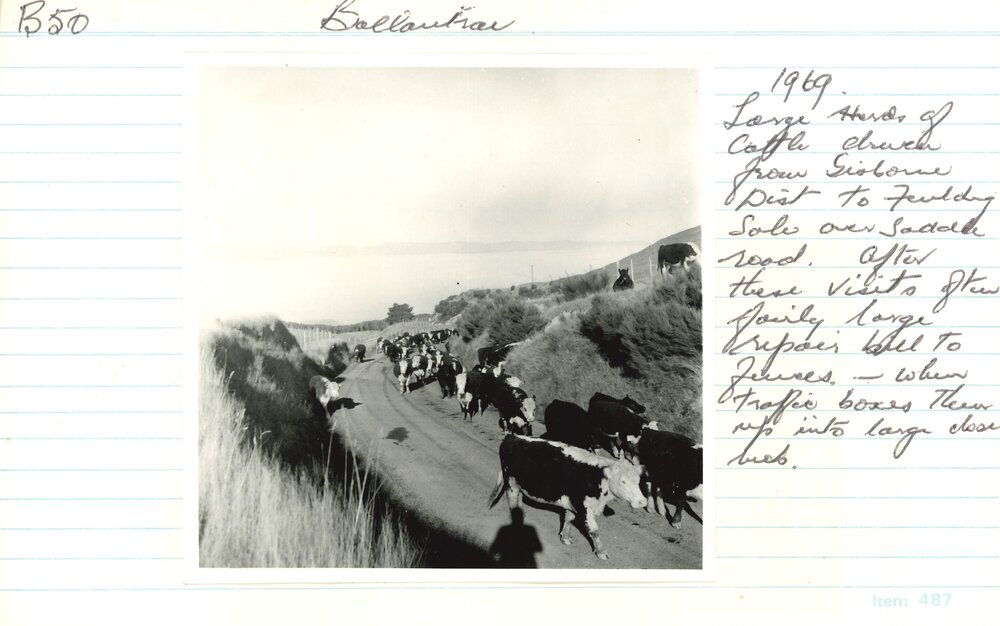 B50
Ballantrae
1969.
Large Herds of
Cattle driven
from Gisborne
Dist to Feilding
Sale over Saddle
road. After
these visits often
fairly large
repair bill to
Fences. – when
traffic boxes them
up into large close
mob.
Item 487